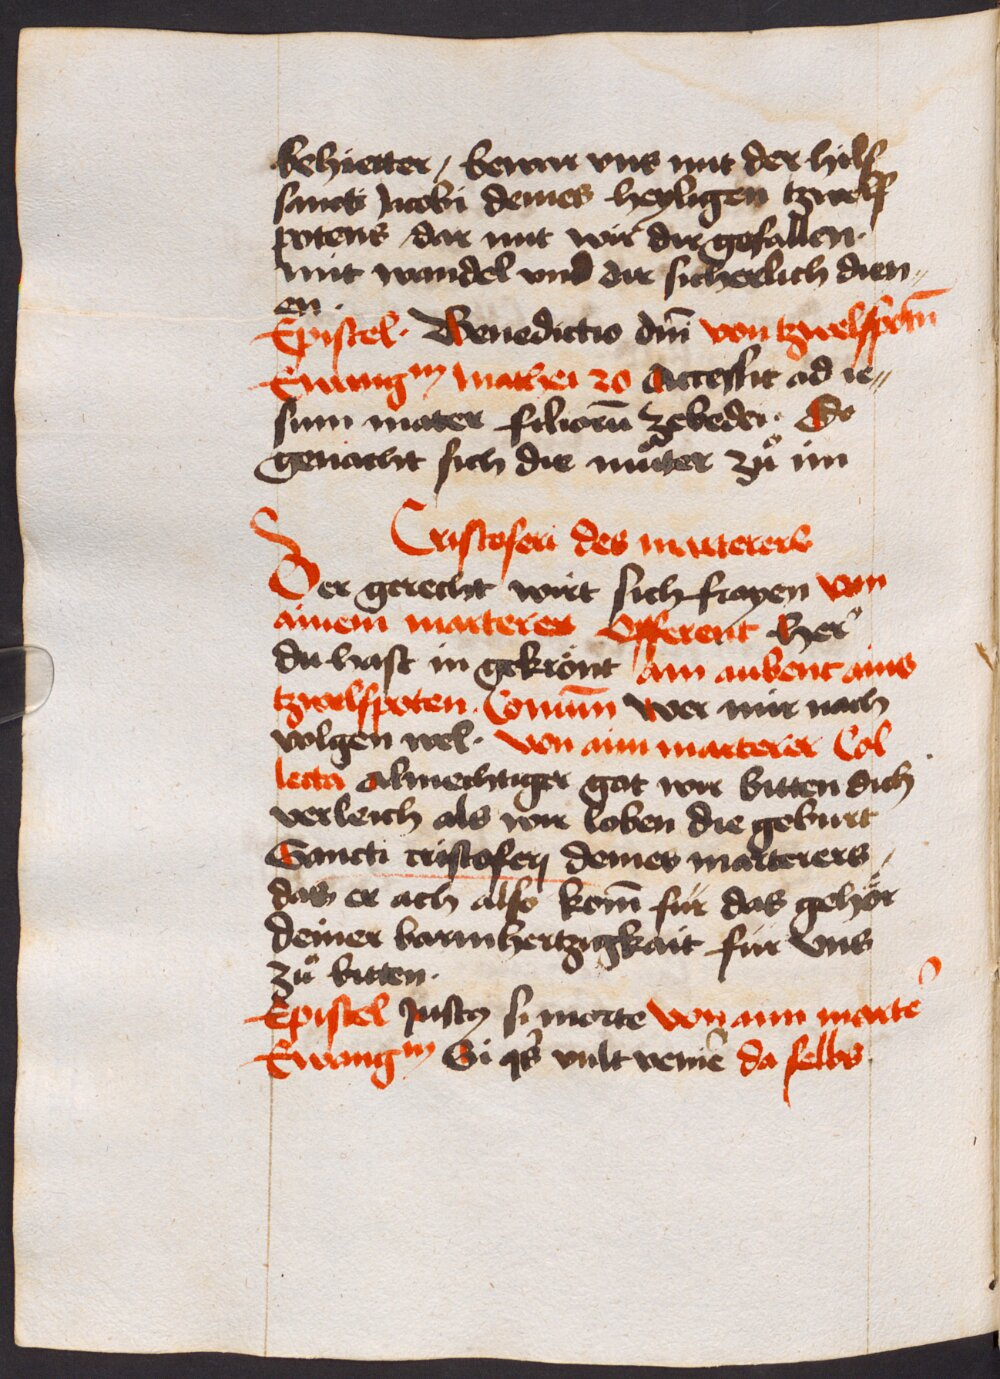 behietter / bewar vns mit der hilf
sancti Jacobi deines heyligen tzwelf
potens / dar mit wir dir gefallen.
mit wandel vnd dir sicherlich dien„
en.
Epistel. Benedictio dn̄i von tzwelfpotn̄
Ewangm mathei 20 Accessit ad ie„
sum mater filiorū zebedei. Es
genacht sich die můter zů im
Cristoferi des martererß
Der gerecht wirt sich frayen von
ainem marterer Offerent her
du hast in gekrönt am aubent ains
tzwelfpoten. Comūn wer mir nach
volgen wel. von aim marterer Col
lecta Almechtiger got wir bitten dich
verleich als wir loben die geburt
Sancti cristoferj deines marterers /
das er ach also kom̄ für das gehör
deiner barmhertzigkait für vns
zů bitten.
Epistel Justꝫ si morte von aim marte͛
Ewangm Si qs̉ vult venie͛ da selbs